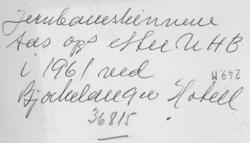 Jernbaneskinnene
taes opp etter UHB
i 1961 ved
Bjørkelangen Hotell
36815